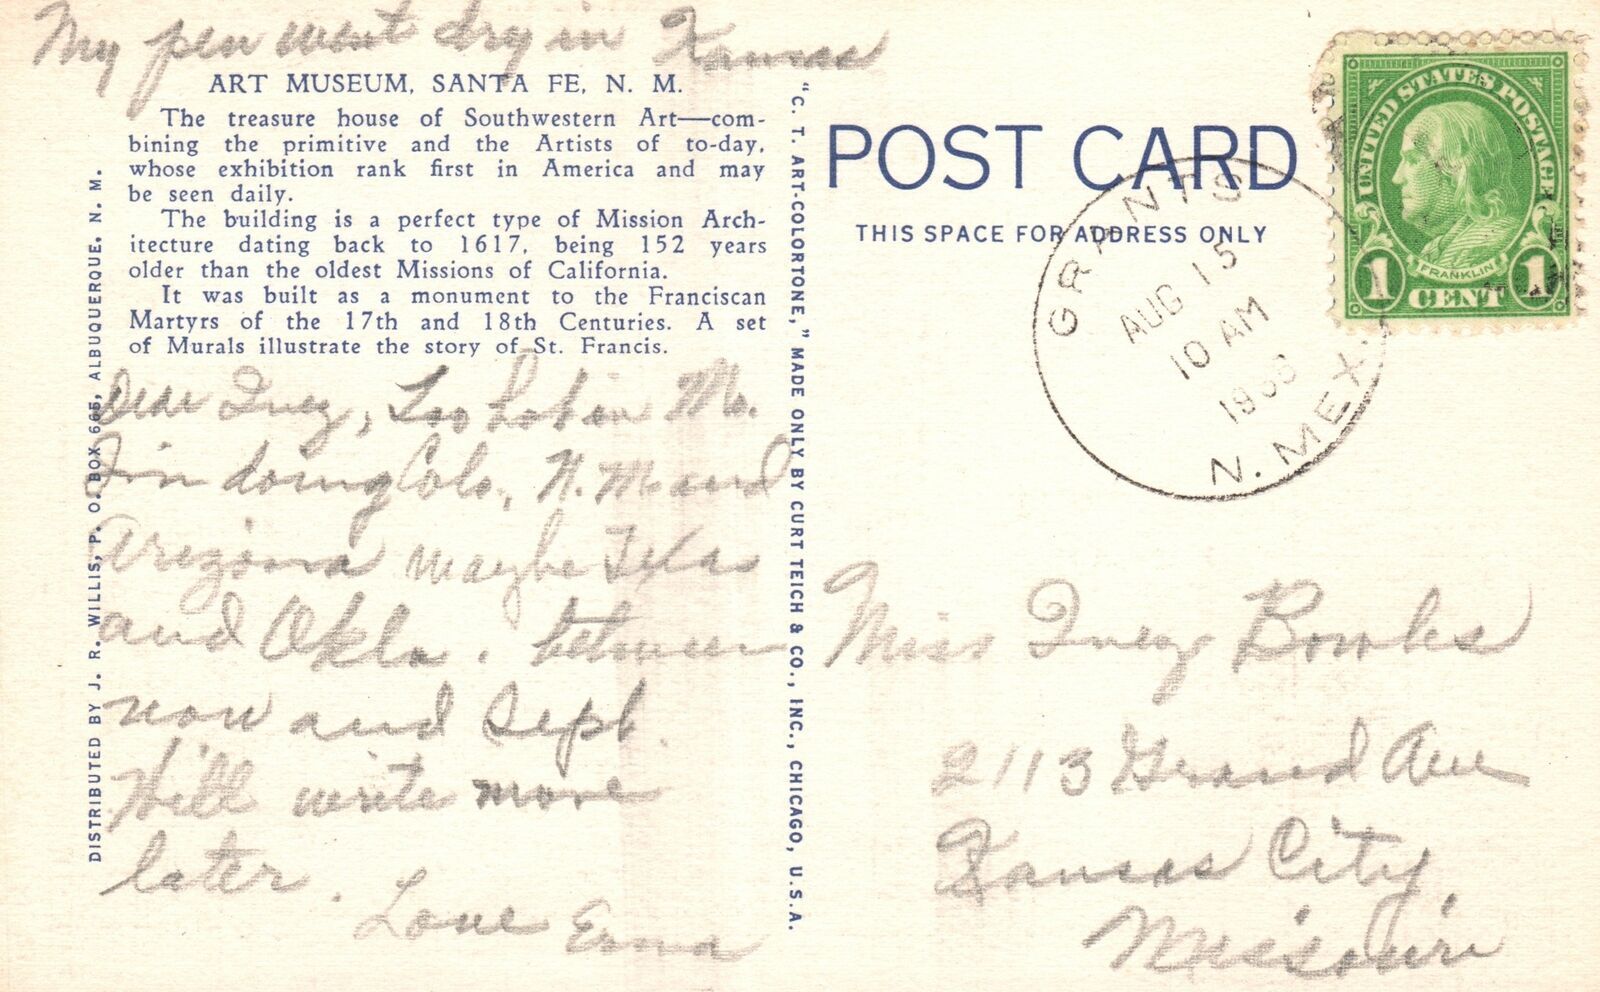 My pen went dry in Kansas
ART MUSEUM, SANTA FE, N. M.
The treasure house of Southwestern Art—com-
bining the primitive and the Artists of to-day,
whose exhibition rank first in America and may
be seen daily.
The building is a perfect type of Mission Arch-
itecture dating back to 1617, being 152 years
older than the oldest Missions of California.
It was built as a monument to the Franciscan
Martyrs of the 17th and 18th Centuries. A set
of Murals illustrate the story of St. Francis.
Dear Inez, Too hot in Mo.
I'm doing Colo., N. M. and
Arizona maybe Texas
and Okla. between
now and Sept.
Will write more
later.
Love Erma
DISTRIBUTED BY J. R. WILLIS, P. O. BOX 665, ALBUQUERQUE, N. M.
"C. T. ART-COLORTONE," MADE ONLY BY CURT TEICH & CO., INC., CHICAGO, U.S.A.
POST CARD
THIS SPACE FOR ADDRESS ONLY
GRANTS
AUG 15
10 AM
N. MEX.
UNITED STATES POSTAGE
FRANKLIN
1 CENT 1
Miss Inez Bowles
2113 Grand Ave
Kansas City,
Missouri